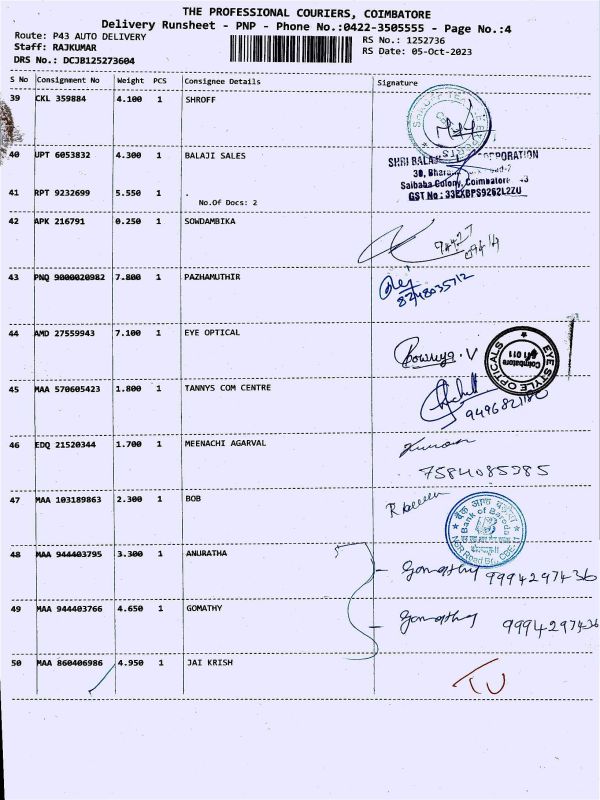 THE PROFESSIONAL COURIERS, COIMBATORE
Delivery Runsheet - PNP - Phone No.:0422-3505555 - Page No.:4
Route: P43 AUTO DELIVERY
RS No.: 1252736
Staff: RAJKUMAR
RS Date: 05-Oct-2023
DRS No.: DCJB125273604
S No Consignment No Weight PCS Consignee Details Signature
39 CKL 359884 4.100 1 SHROFF
40 UPT 6053832 4.300 1 BALAJI SALES
SHRI BALAJI CORPORATION
Saibaba Colony, Coimbatore
GST No: 33EXBPS9262L2ZU
41 RPT 9232699 5.550 1 .
No.Of Docs: 2
42 APK 216791 0.250 1 SOWDAMBIKA
43 PNQ 9000020982 7.800 1 PAZHAMUTHIR
8248035712
44 AMD 27559943 7.100 1 EYE OPTICAL
Sowmya.V
EYE STYLE OPTICALS
Coimbatore
641 011
45 MAA 570605423 1.800 1 TANNYS COM CENTRE
46 EDQ 21520344 1.700 1 MEENACHI AGARVAL
7584085285
47 MAA 103189863 2.300 1 BOB
Bank of Baroda
48 MAA 944403795 3.300 1 ANURATHA
Gomathy 9994297436
49 MAA 944403766 4.650 1 GOMATHY
Gomathy 9994297436
50 MAA 860406986 4.950 1 JAI KRISH
TU